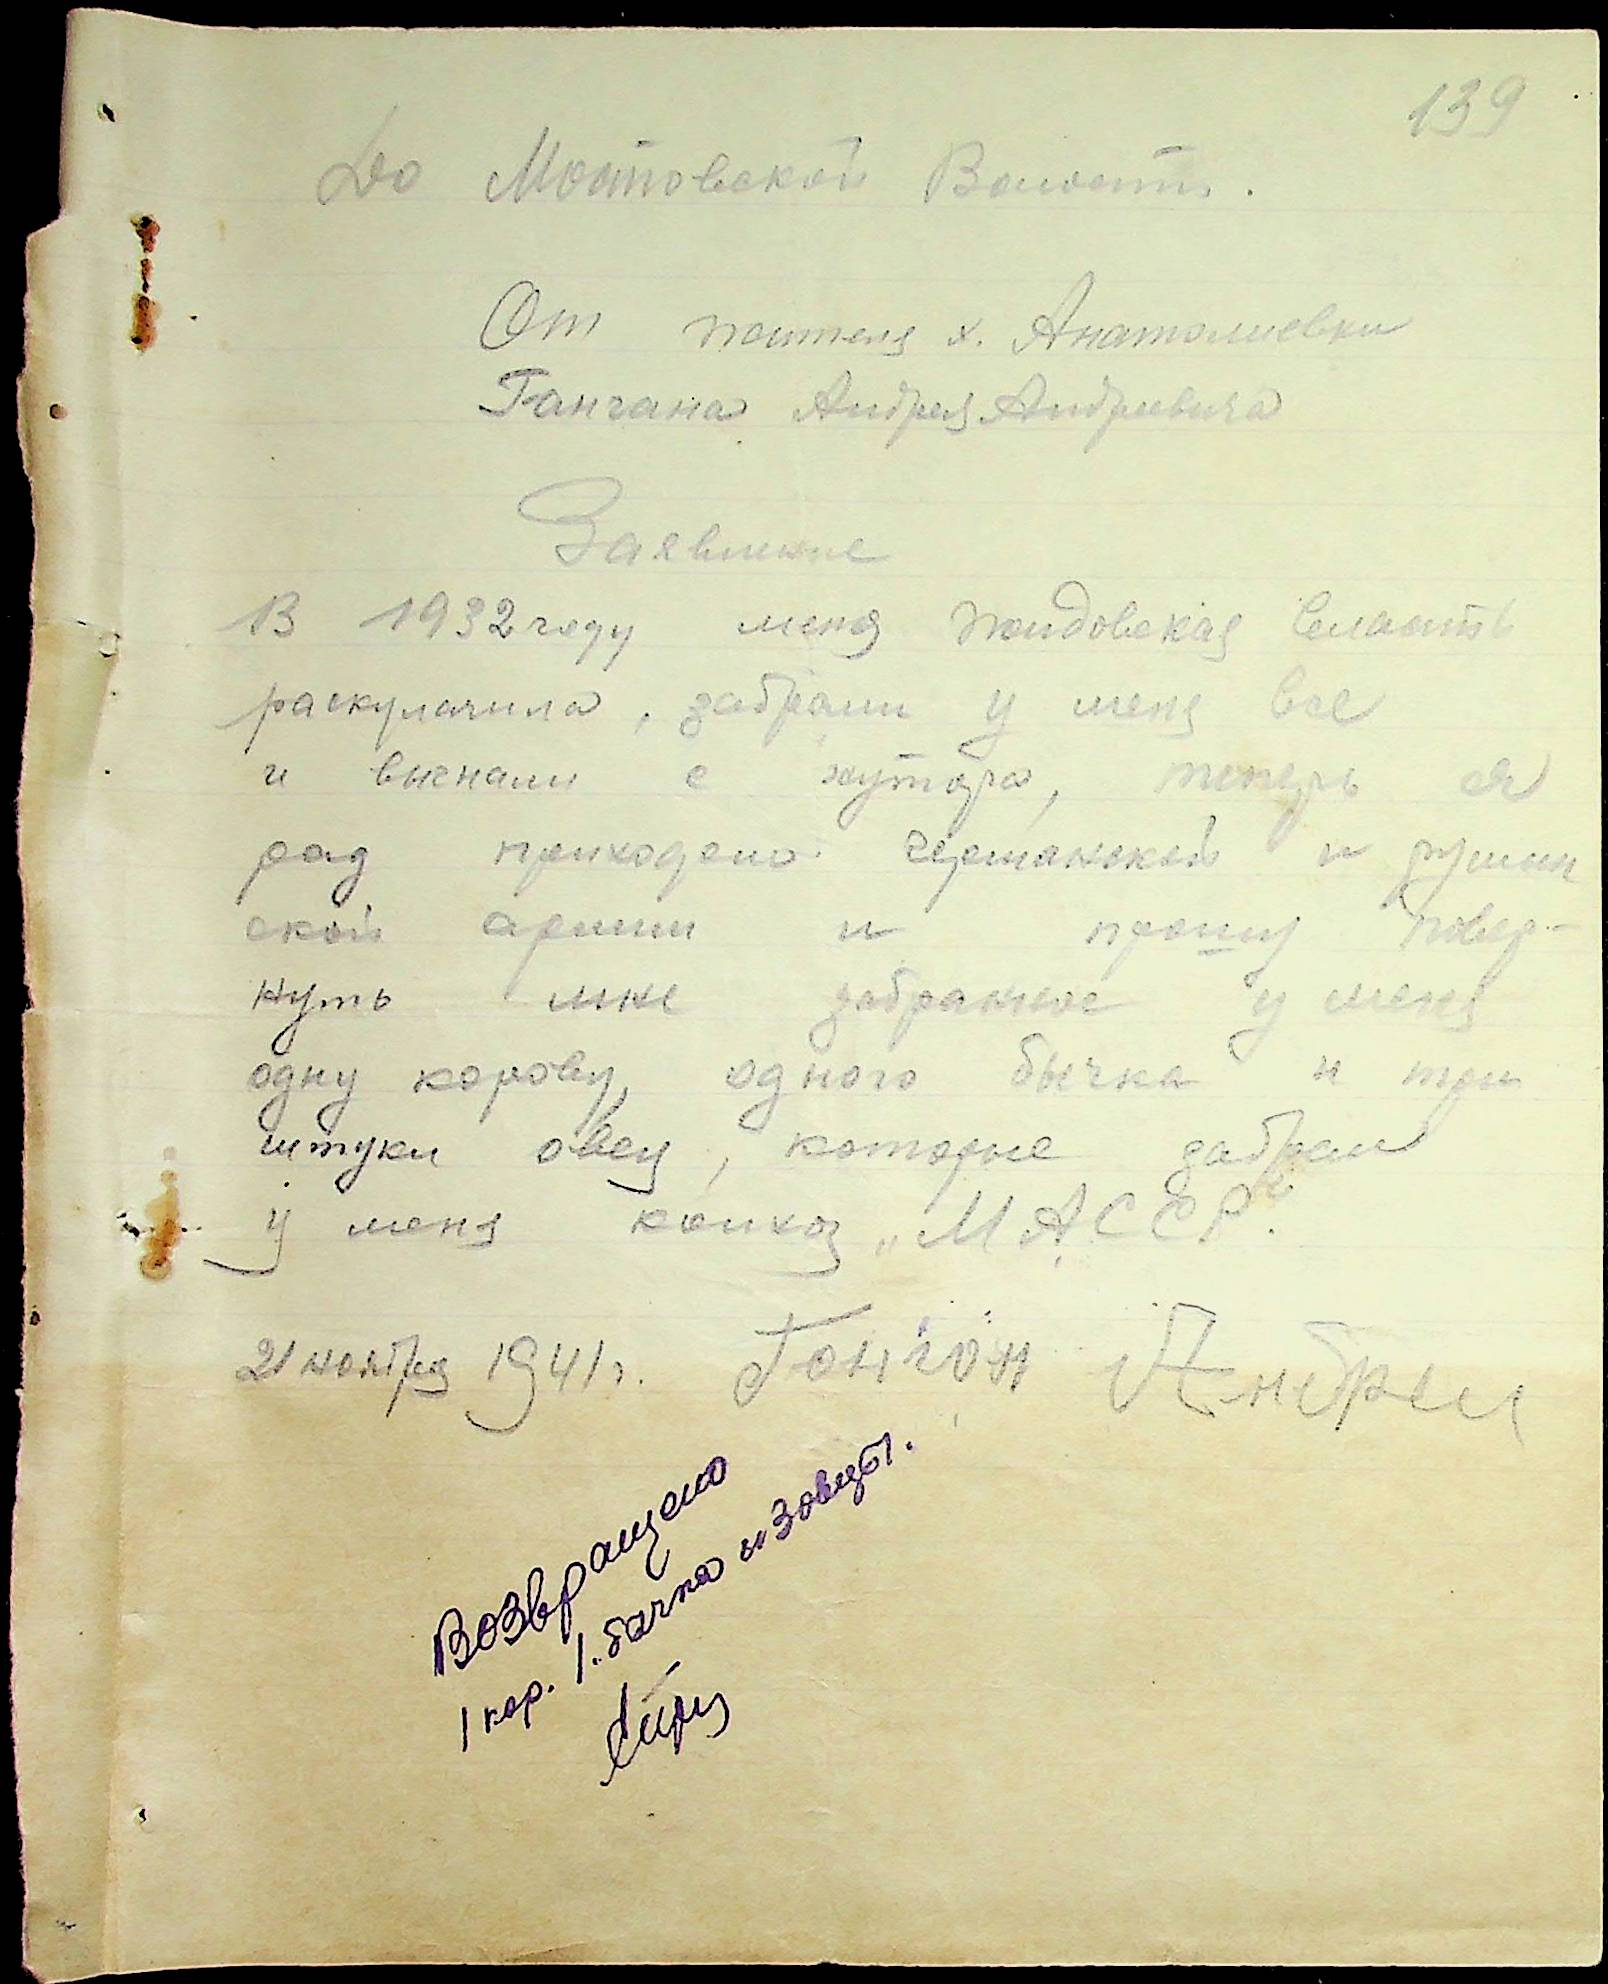 139
До Мостовской Волости.
От жителя х. Анатолиевки
Ганчана Андрея Андреевича
Заявление
В 1932 году меня жидовская власть
раскулачила, забрали у меня все
и выгнали с хутора, теперь я
рад приходом германской и румын
ской армии и прошу повер-
нуть мне забранное у меня
одну корову, одного бычка и три
штуки овец, которые забрал
у меня колхоз „МАССР".
21 ноября 1941 г. Гончан Андрей
Возвращено
1 кор. 1. бычка и 3 овцы.